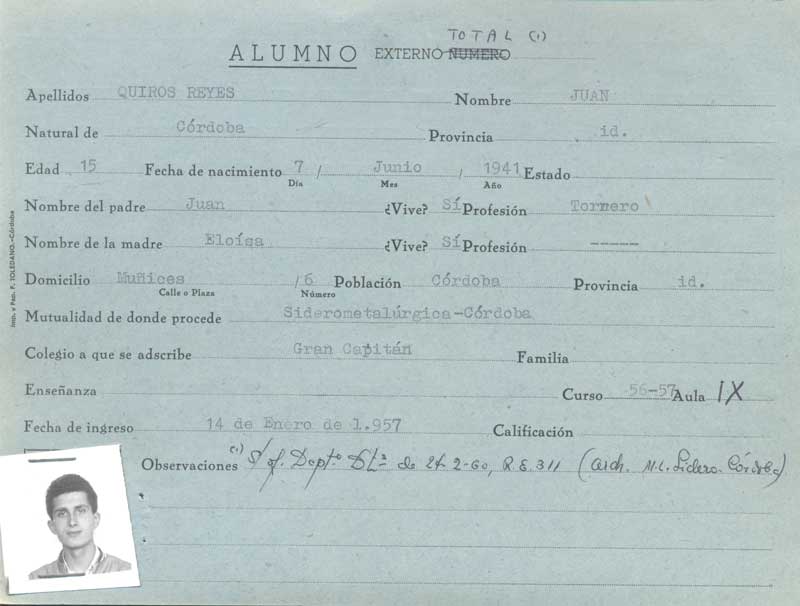 TOTAL (1)
ALUMNO EXTERNO NUMERO
Apellidos QUIROS REYES Nombre JUAN
Natural de Córdoba Provincia id.
Edad 15 Fecha de nacimiento 7 / Junio / 1941 Estado
Día Mes Año
Nombre del padre Juan ¿Vive? Sí Profesión Tornero
Nombre de la madre Eloísa ¿Vive? Sí Profesión -----
Domicilio Muñices / 6 Población Córdoba Provincia id.
Calle o Plaza Número
Mutualidad de donde procede Siderometalúrgica-Córdoba
Colegio a que se adscribe Gran Capitán Familia
Enseñanza Curso 56-57 Aula IX
Fecha de ingreso 14 de Enero de 1.957 Calificación
Observaciones (1) S/ of. Deptº de 2-60, R.S. 311 (Arch. M.L. Sidero-Córdoba)
Imp. y Pap. F. TOLEDANO.-Córdoba